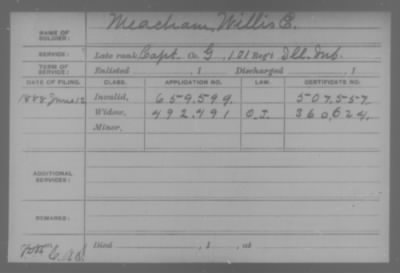 NAME OF SOLDIER: Meacham, Willis E.
SERVICE: Late rank Capt. Co. G, 101 Reg't Ill. Inf.
TERM OF SERVICE: Enlisted , 1 Discharged , 1
DATE OF FILING. CLASS. APPLICATION NO. LAW. CERTIFICATE NO.
1888 June 12 Invalid, 659.599. 507.557.
Widow, 492.491 O.J. 360,624.
Minor,
ADDITIONAL SERVICES:
REMARKS:
Died , 1 , at